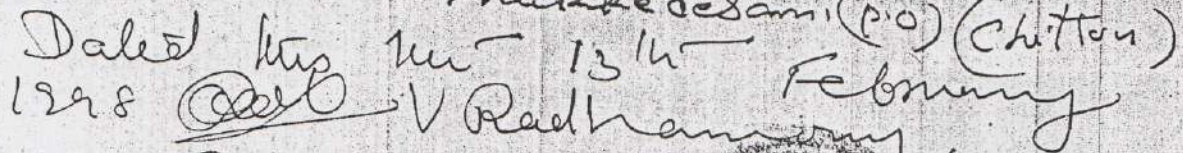 (P.O) (Chittoor)
Dated this the 13th February
1998 V Radhamony